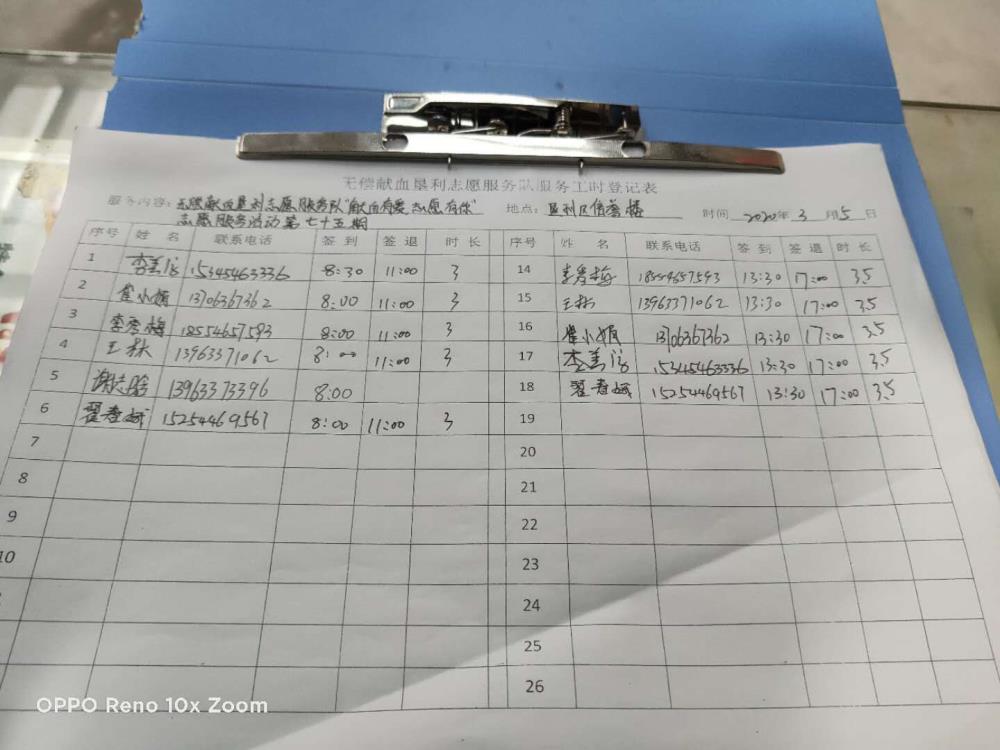 无偿献血垦利志愿服务队服务工时登记表
服务内容：无偿献血垦利志愿服务队"献血有爱 志愿有你" 地点：垦利区信誉楼 时间 2020年 3 月 5 日
志愿服务活动第七十五期
序号 姓 名 联系电话 签 到 签 退 时 长 序号 姓 名 联系电话 签 到 签 退 时 长
1 李美 15345463336 8:30 11:00 3 14 李秀梅 18554657593 13:30 17:00 3.5
2 崔小娟 13706367362 8:00 11:00 3 15 王秋 13963371062 13:30 17:00 3.5
3 李秀梅 18554657593 8:00 11:00 3 16 崔小娟 13706367362 13:30 17:00 3.5
4 王秋 13963371062 8:00 11:00 3 17 李美 15345463336 13:30 17:00 3.5
5 13963373396 8:00 18 翟春 15254469567 13:30 17:00 3.5
6 翟春 15254469567 8:00 11:00 3 19
7 20
8 21
9 22
10 23
24
25
26
OPPO Reno 10x Zoom